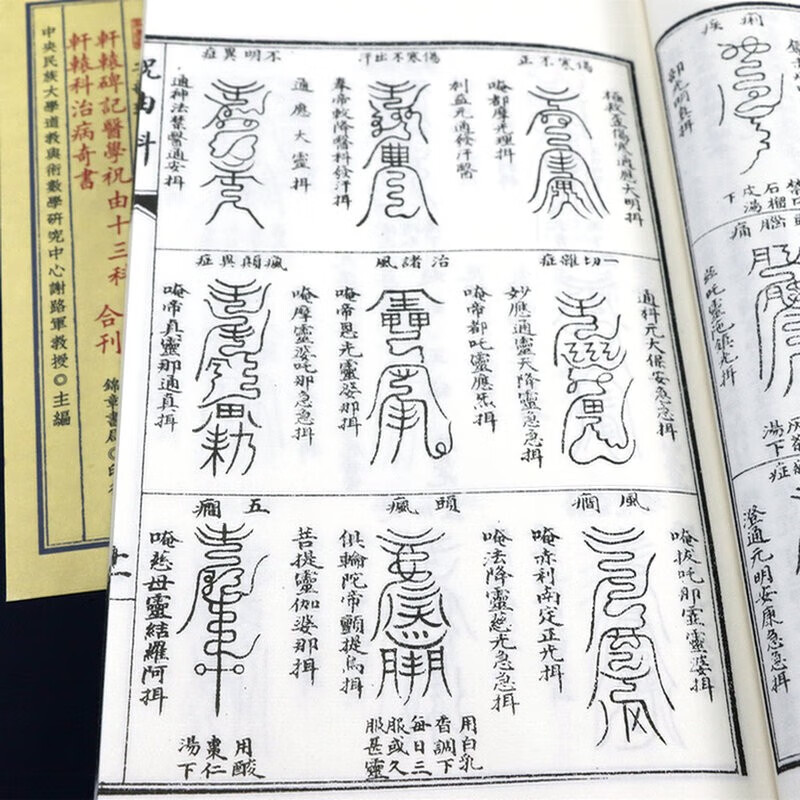 軒轅碑記醫學祝由十三科
軒轅科治病奇書
合刊
中央民族大學道教與術數學研究中心謝路軍教授◎主編
錦章書局◎印
祝由科
傷寒不正
極救玄傷寒通應大明揖
唵都摩光理揖
傷寒不出汗
利益元通發汗醫
奉帝敕降醫科發汗揖
不明異症
通應大靈揖
通神法禁醫通安揖
一切雜症
通科元大保安急急揖
妙應通靈天降靈急急揖
治諸風
唵帝都吒靈應炁揖
唵帝恩光靈婆那揖
瘋顛異症
唵摩靈婆吒那急急揖
唵帝真靈那通真揖
風癎
唵拔吒那靈靈婆揖
唵赤利南定正光揖
頭瘋
唵法降靈慈光急急揖
俱輪陀帝顫提烏揖
用白乳
香調下
每日三
服或久
服甚靈
五癎
菩提靈伽婆那揖
唵慈母靈結羅阿揖
用酸
棗仁
湯下
十一
痢疾
石榴
皮湯
下
腦痛
湯下
澄通元明安康急急揖